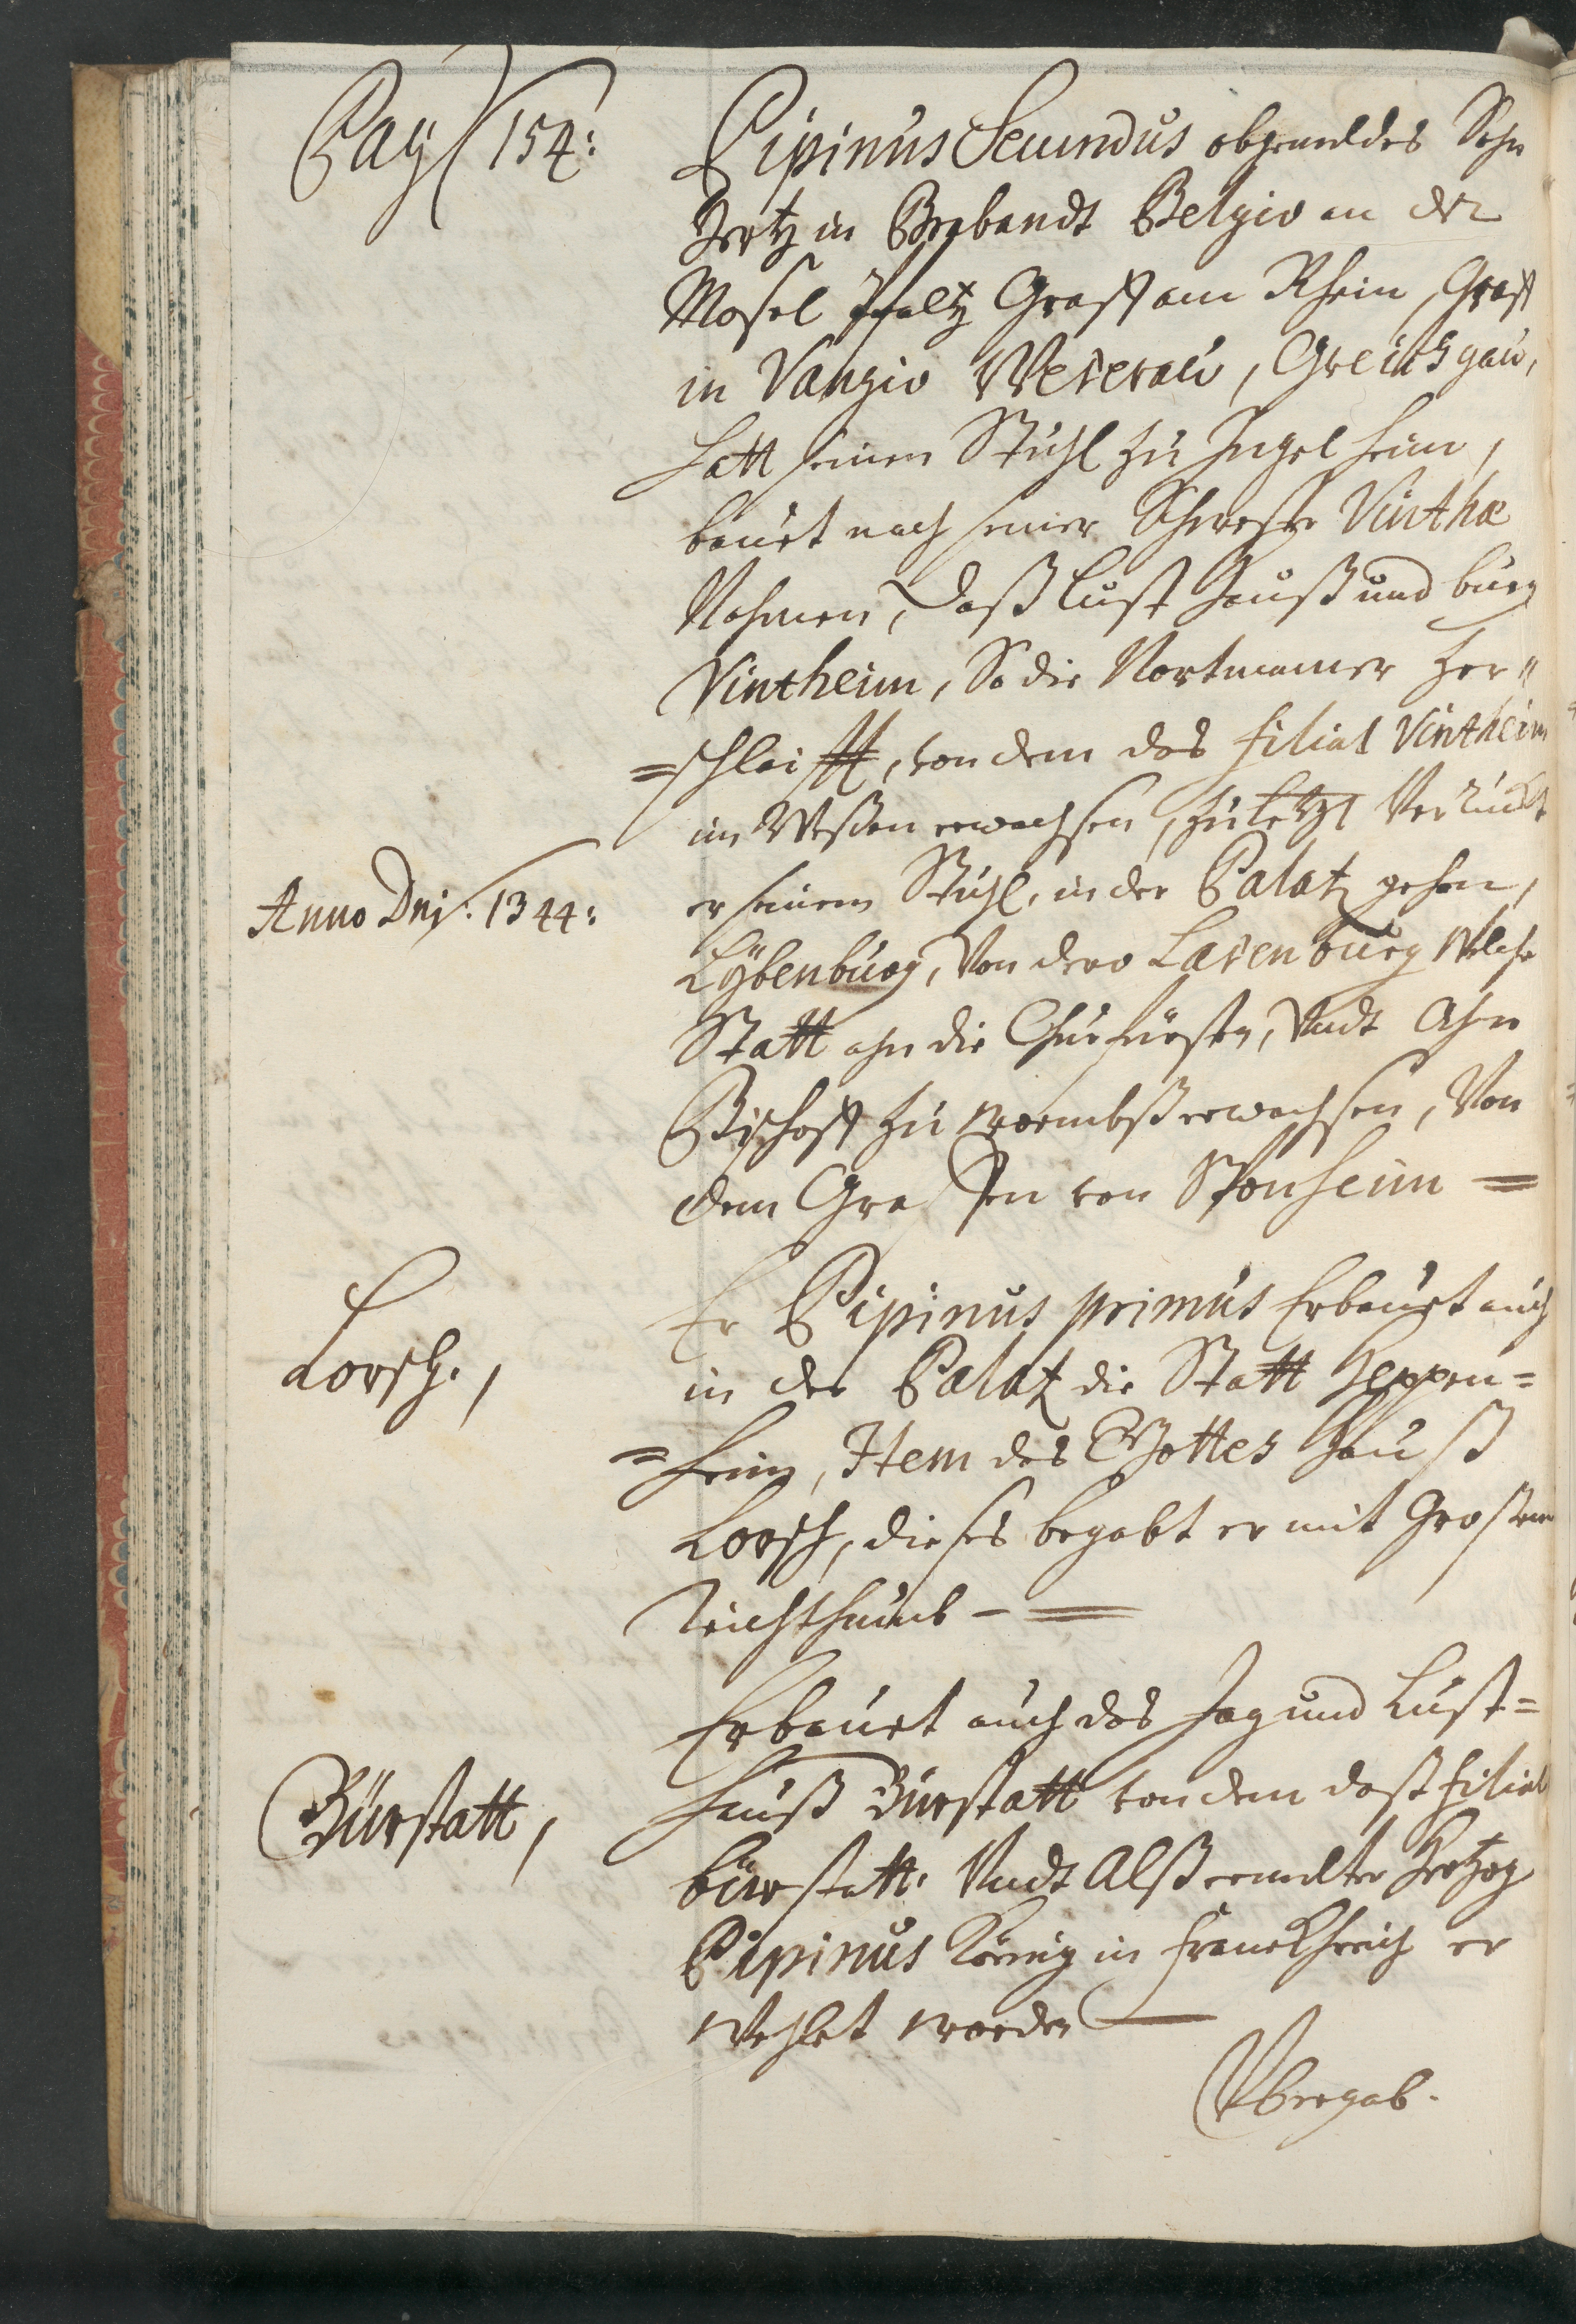 Pag 154:
Pipinus Secundus obgemeldes Sohn
Hertz in Brabandt Belgio an der
Mosel Pfaltz Graff am Rhein, Graff
in Vangio Weterau, Greichsgau,
hatt seinen Stuhl zu Ingelheim,
bauet nach seiner Schwester Vinthæ
Nahmen, daß Lust Hauß und burg
Vintheim, So die Nortmänner zer"
=schleifft, von dem das filial Vintheim
im Weßen erwachsen, zuletzt Veruckt
Anno Dni: 1344:
er seinen Stuhl, in der Palatz gehen,
Lÿbenburg, Von dero Latenburg Welche
Statt ahn die Churfürsten, Undt Ahn
Bischoff zu Wormbß erwachsen, Von
dem Graffen von Sponheim =
Lorsch.,
Er Pipinus primus Erbauet auch
in der Palatz die Statt Heppen=
=heim, Item das Gottes Hauß
Lorsch, dieses begabt er mit Großem
Reichthumb - =
Erbauet auch das Jag und Lust=
Bürstatt,
hauß Bürstatt von dem daß filial
bürstatt. Undt Alß ermelter Hertzog
Pipinus König in Franckhreich er
wehlet worden
Vbergab.